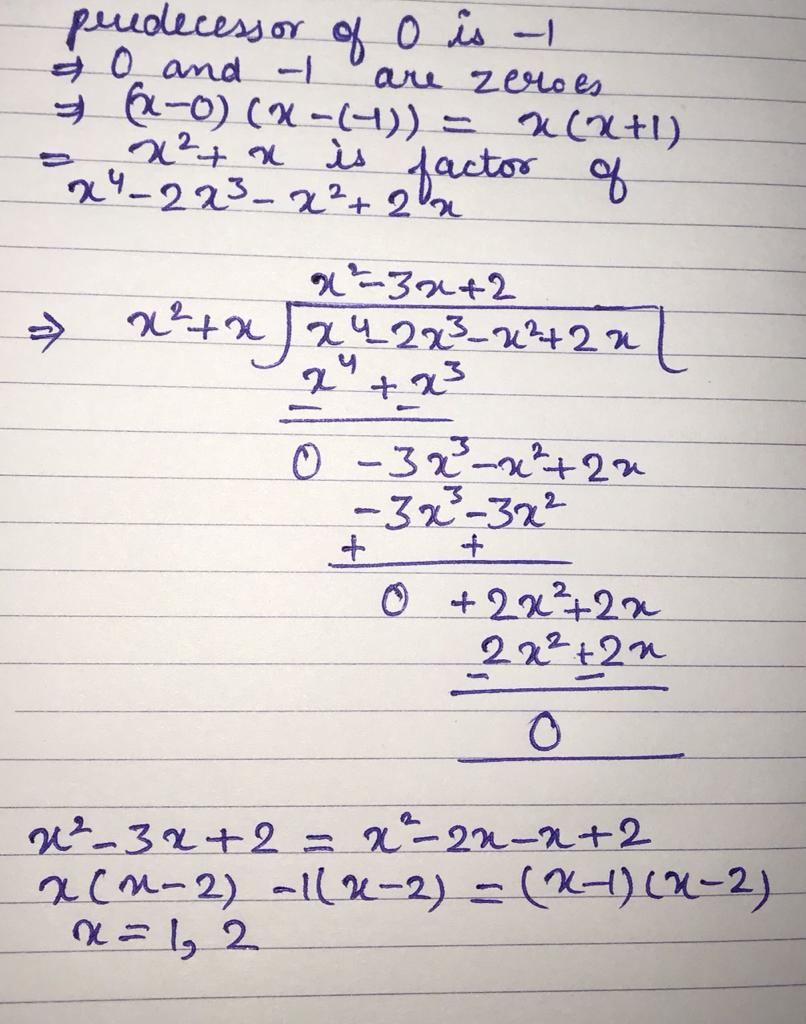 predecessor of 0 is -1
⇒ 0 and -1 are zeroes
⇒ (x-0) (x-(-1)) = x(x+1)
= x²+ x is factor of
x⁴-2x³-x²+2x
x²-3x+2
⇒ x²+x ) x⁴-2x³-x²+2x
x⁴ + x³
- -
0 -3x³-x²+2x
-3x³-3x²
+ +
0 +2x²+2x
2x²+2x
- -
0
x²-3x+2 = x²-2x-x+2
x(x-2) -1(x-2) = (x-1)(x-2)
x=1, 2